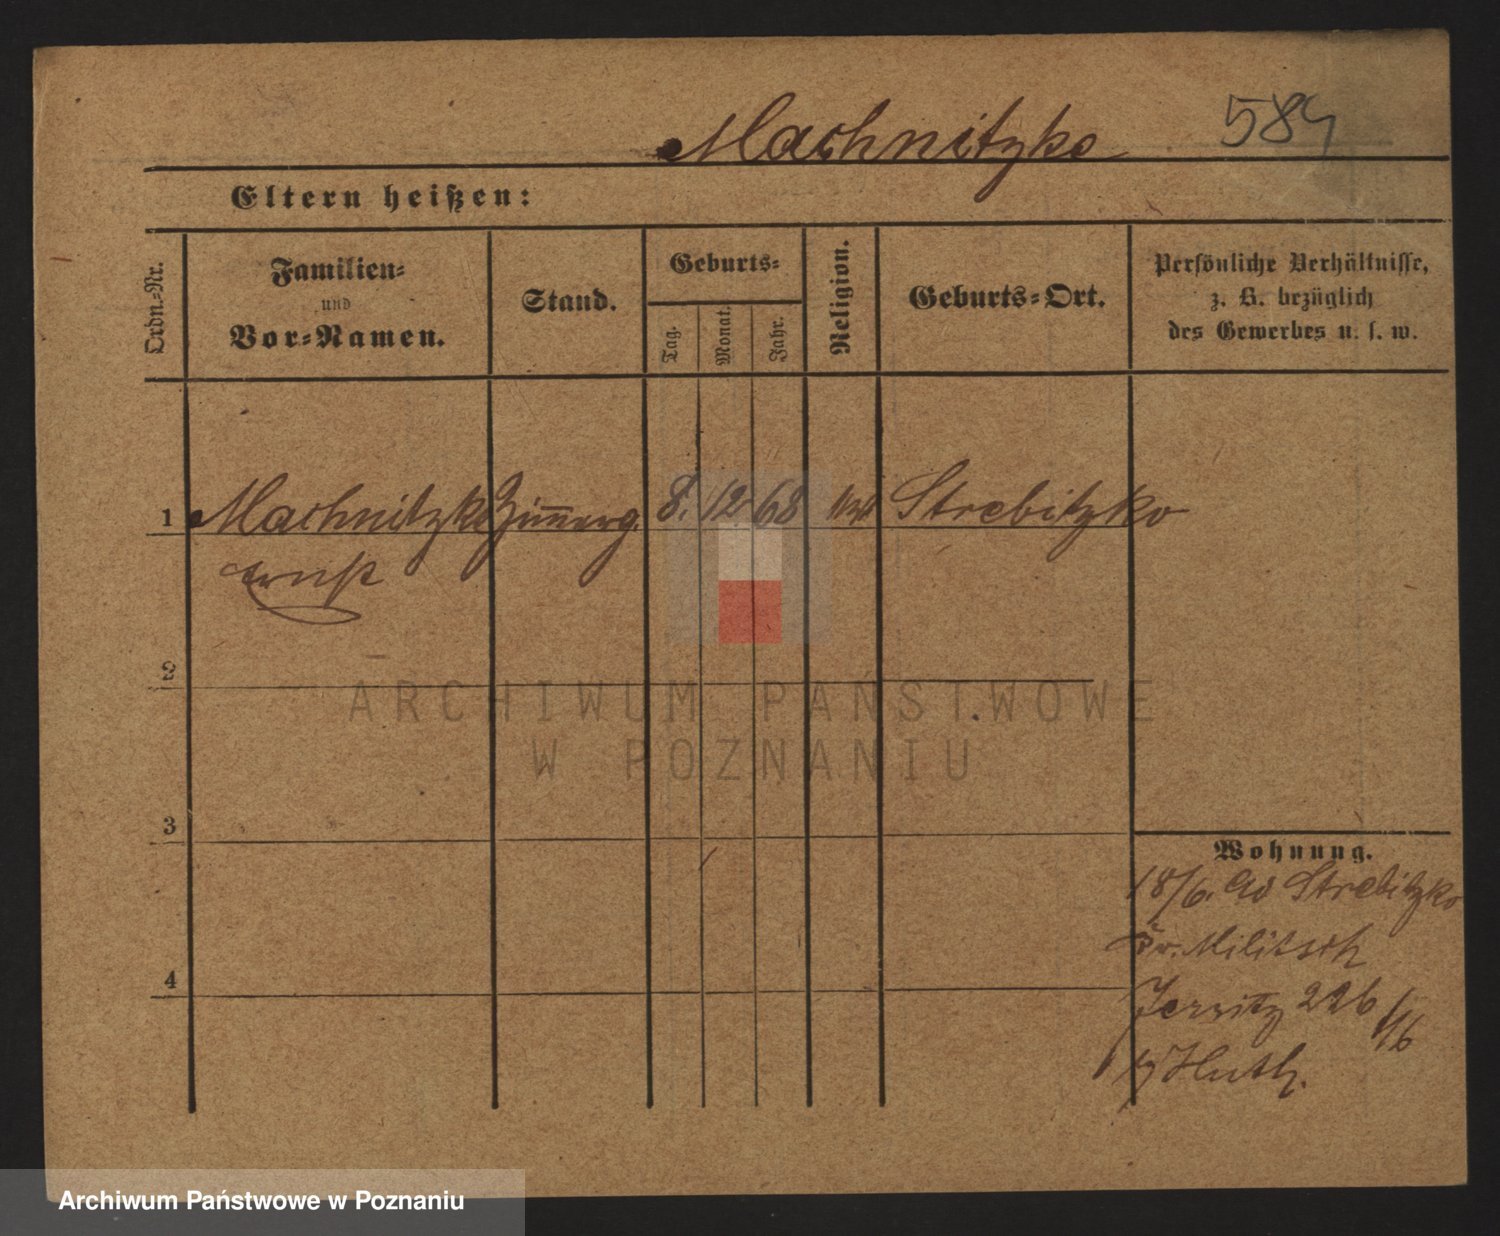 Machnitzke 584
Eltern heißen:
Ordn.-Nr.
Familien-
und
Vor-Namen.
Stand.
Geburts-
Tag.
Monat.
Jahr.
Religion.
Geburts-Ort.
Persönliche Verhältnisse,
z. B. bezüglich
des Gewerbes u. s. w.
1 Machnitzke Zimmerg. 8. 12 68 Strebitzko
Ernst
2
3
4
Wohnung.
18/6. 90 Strebitzko
Kr. Militsch
Jersitz 226
b/ Huth.
ARCHIWUM PAŃSTWOWE
W POZNANIU
Archiwum Państwowe w Poznaniu